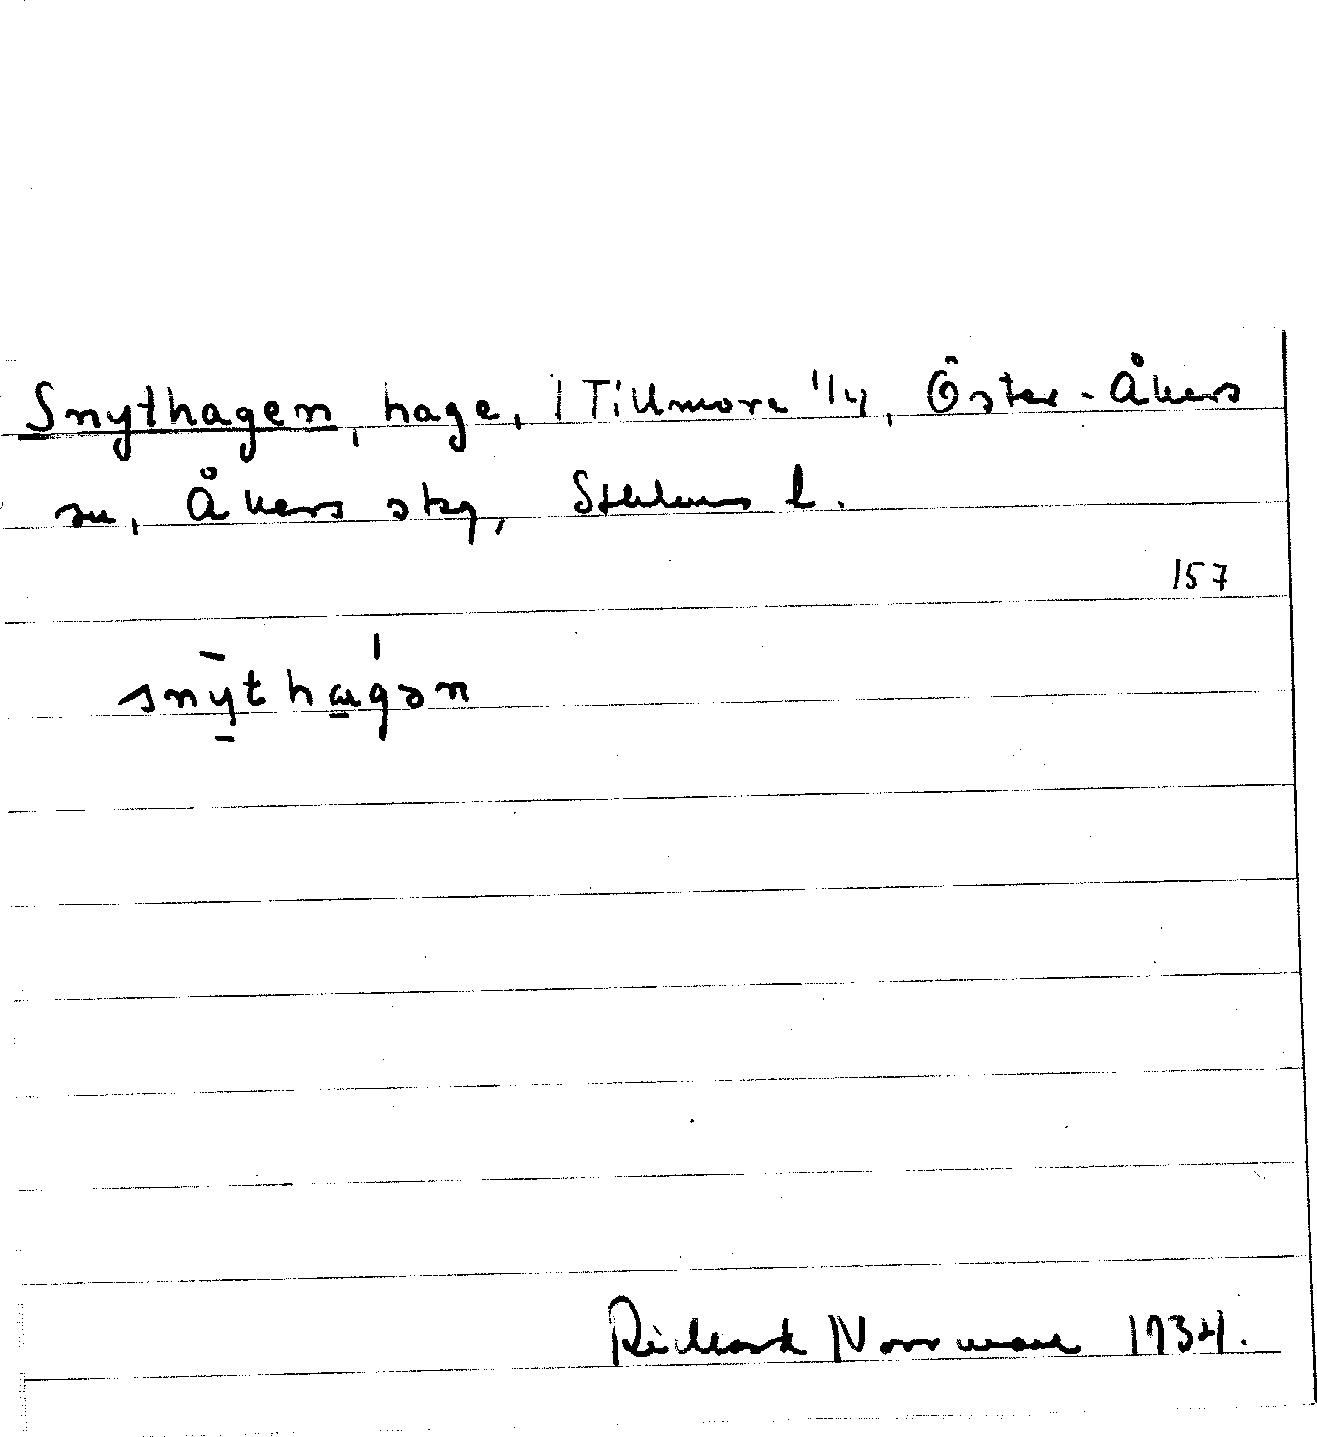 Snythagen, hage, 1 Tillmora 1/4, Öster-Åkers
sn, Åkers skg, Sthlms l.
157
snȳthagən
Rickard Norrman 1934.